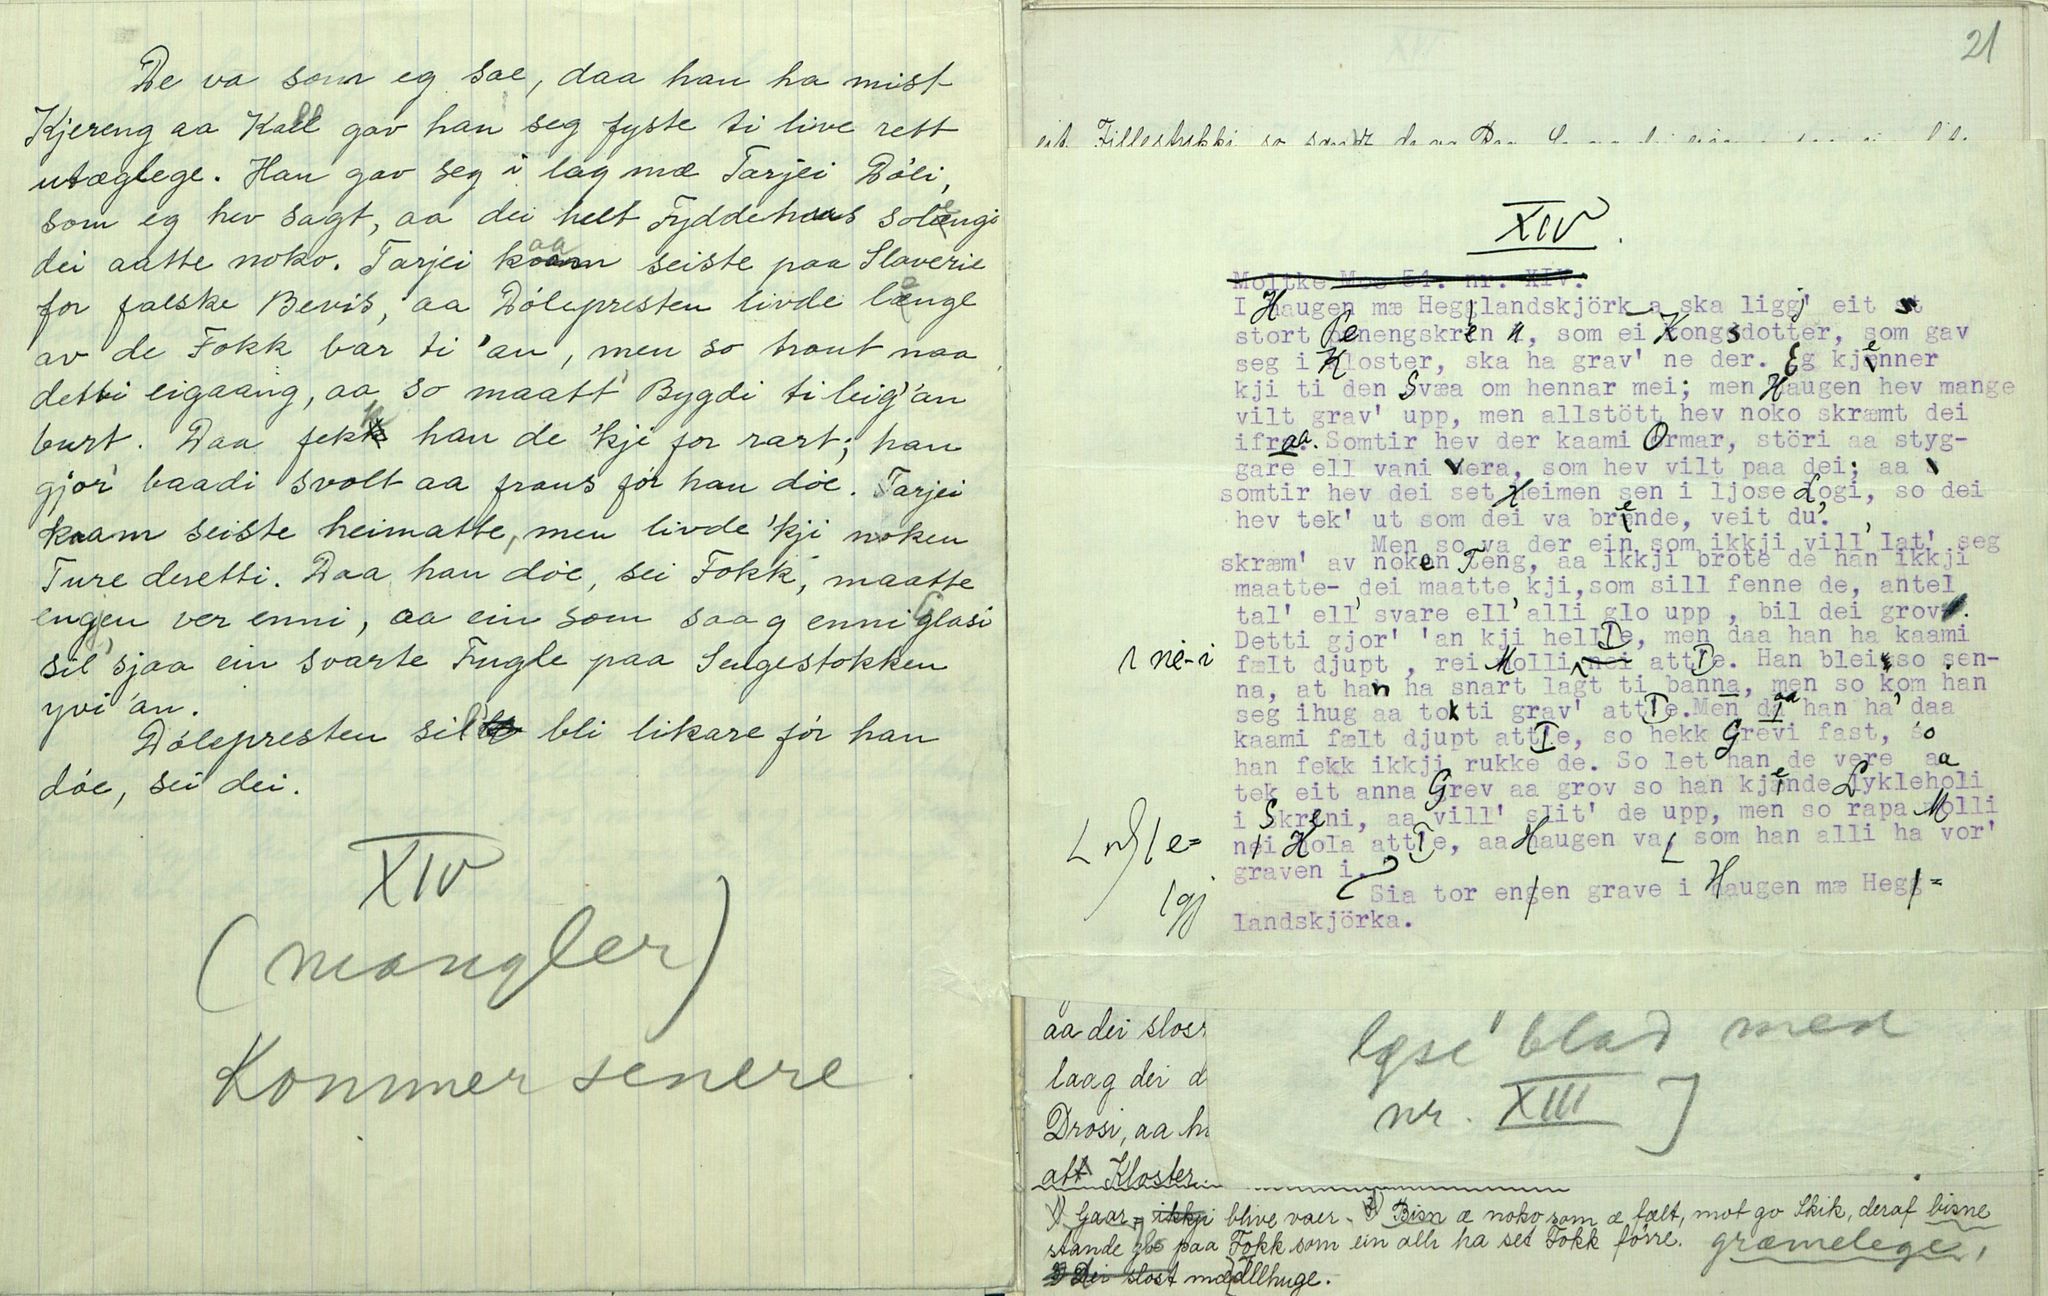 De va som eg sae, daa han ha mist
Kjereng aa Kall gav han seg fyste ti live rett
utæglege. Han gav seg i lag mæ Tarjei Dóli,
som eg hev sagt, aa dei helt Fyddehaus solengi
dei aatte noko. Tarjei kaam seiste paa Slaverie
for falske Bevis, aa Dólepresten livde lenge
av de Fokk bar ti 'an, men so traut naa
detti eigaang, aa so maatt' Bygdi ti leig' 'an
burt. Daa fekk han de 'kji for rart; han
gjor' baadi svolt aa fraus fór han dóe. Tarjei
kaam seiste heimatte, men livde 'kji noken
Ture deretti. Daa han dóe, sei Fokk, maatte
engjen ver enni, aa ein som saag enni Glasi
sil' sjaa ein svarte Fugle paa Sengestokken
yvi 'an.
Dólepresten sill bli likare fór han
dóe, sei dei.
XIV
(mangler)
Kommer senere.
21
eit Fillestykki so
XIV.
Moltke Moe 54. nr. XIV.
I Haugen mæ Hegglandskjörk a ska liggj' eit
stort Penengskren, som ei Kongsdotter, som gav
seg i Kloster, ska ha grav' ne der. Eg kjenner
kji ti den Svæa om hennar mei; men Haugen hev mange
vilt grav' upp, men allstött hev noko skræmt dei
ifraa. Somtir hev der kaami Ormar, störi aa styg-
gare ell vani vera, som hev vilt paa dei; aa
somtir hev dei set Heimen sen i ljose Logi, so dei
hev tek' ut som dei va brende, veit du.
Men so va der ein som ikkji vill' lat' seg
skræm' av noken Teng, aa ikkji brote de han ikkji
maatte- dei maatte kji, som sill fenne de, antel
tal' ell' svare ell' alli glo upp, bil dei grov.
Detti gjor' 'an kji hellIe, men daa han ha kaami
1 ne-i
fælt djupt, rei Molli nei attIe. Han blei so sen-
na, at han ha snart lagt ti banna, men so kom han
seg ihug aa tok ti grav' attIe. Men daa han ha' daa
kaami fælt djupt attIe, so hekk Grevi fast, so
han fekk ikkji rukke de. So let han de vere aa
tek eit anna Grev aa grov so han kjende Lykleholi
i Skreni, aa vill' slit' de upp, men so rapa Molli
nei Hola attIe, aa Haugen va, som han alli ha vor'
graven i.
1gj
Sia tor engen grave i Haugen mæ Hegg=
landskjörka.
aa dei slost
laag dei d
Drosi, aa h
att Kloster
løse blad med
nr. XIII ]
1) Gaar - ikkji blive vaer. 2) Bisn æ noko som æ fælt, mot go Skik, deraf bisne
stande glo paa Fokk som ein alli ha set Fokk förre. græmelege,
3) Dei slost mæ Allhuge.